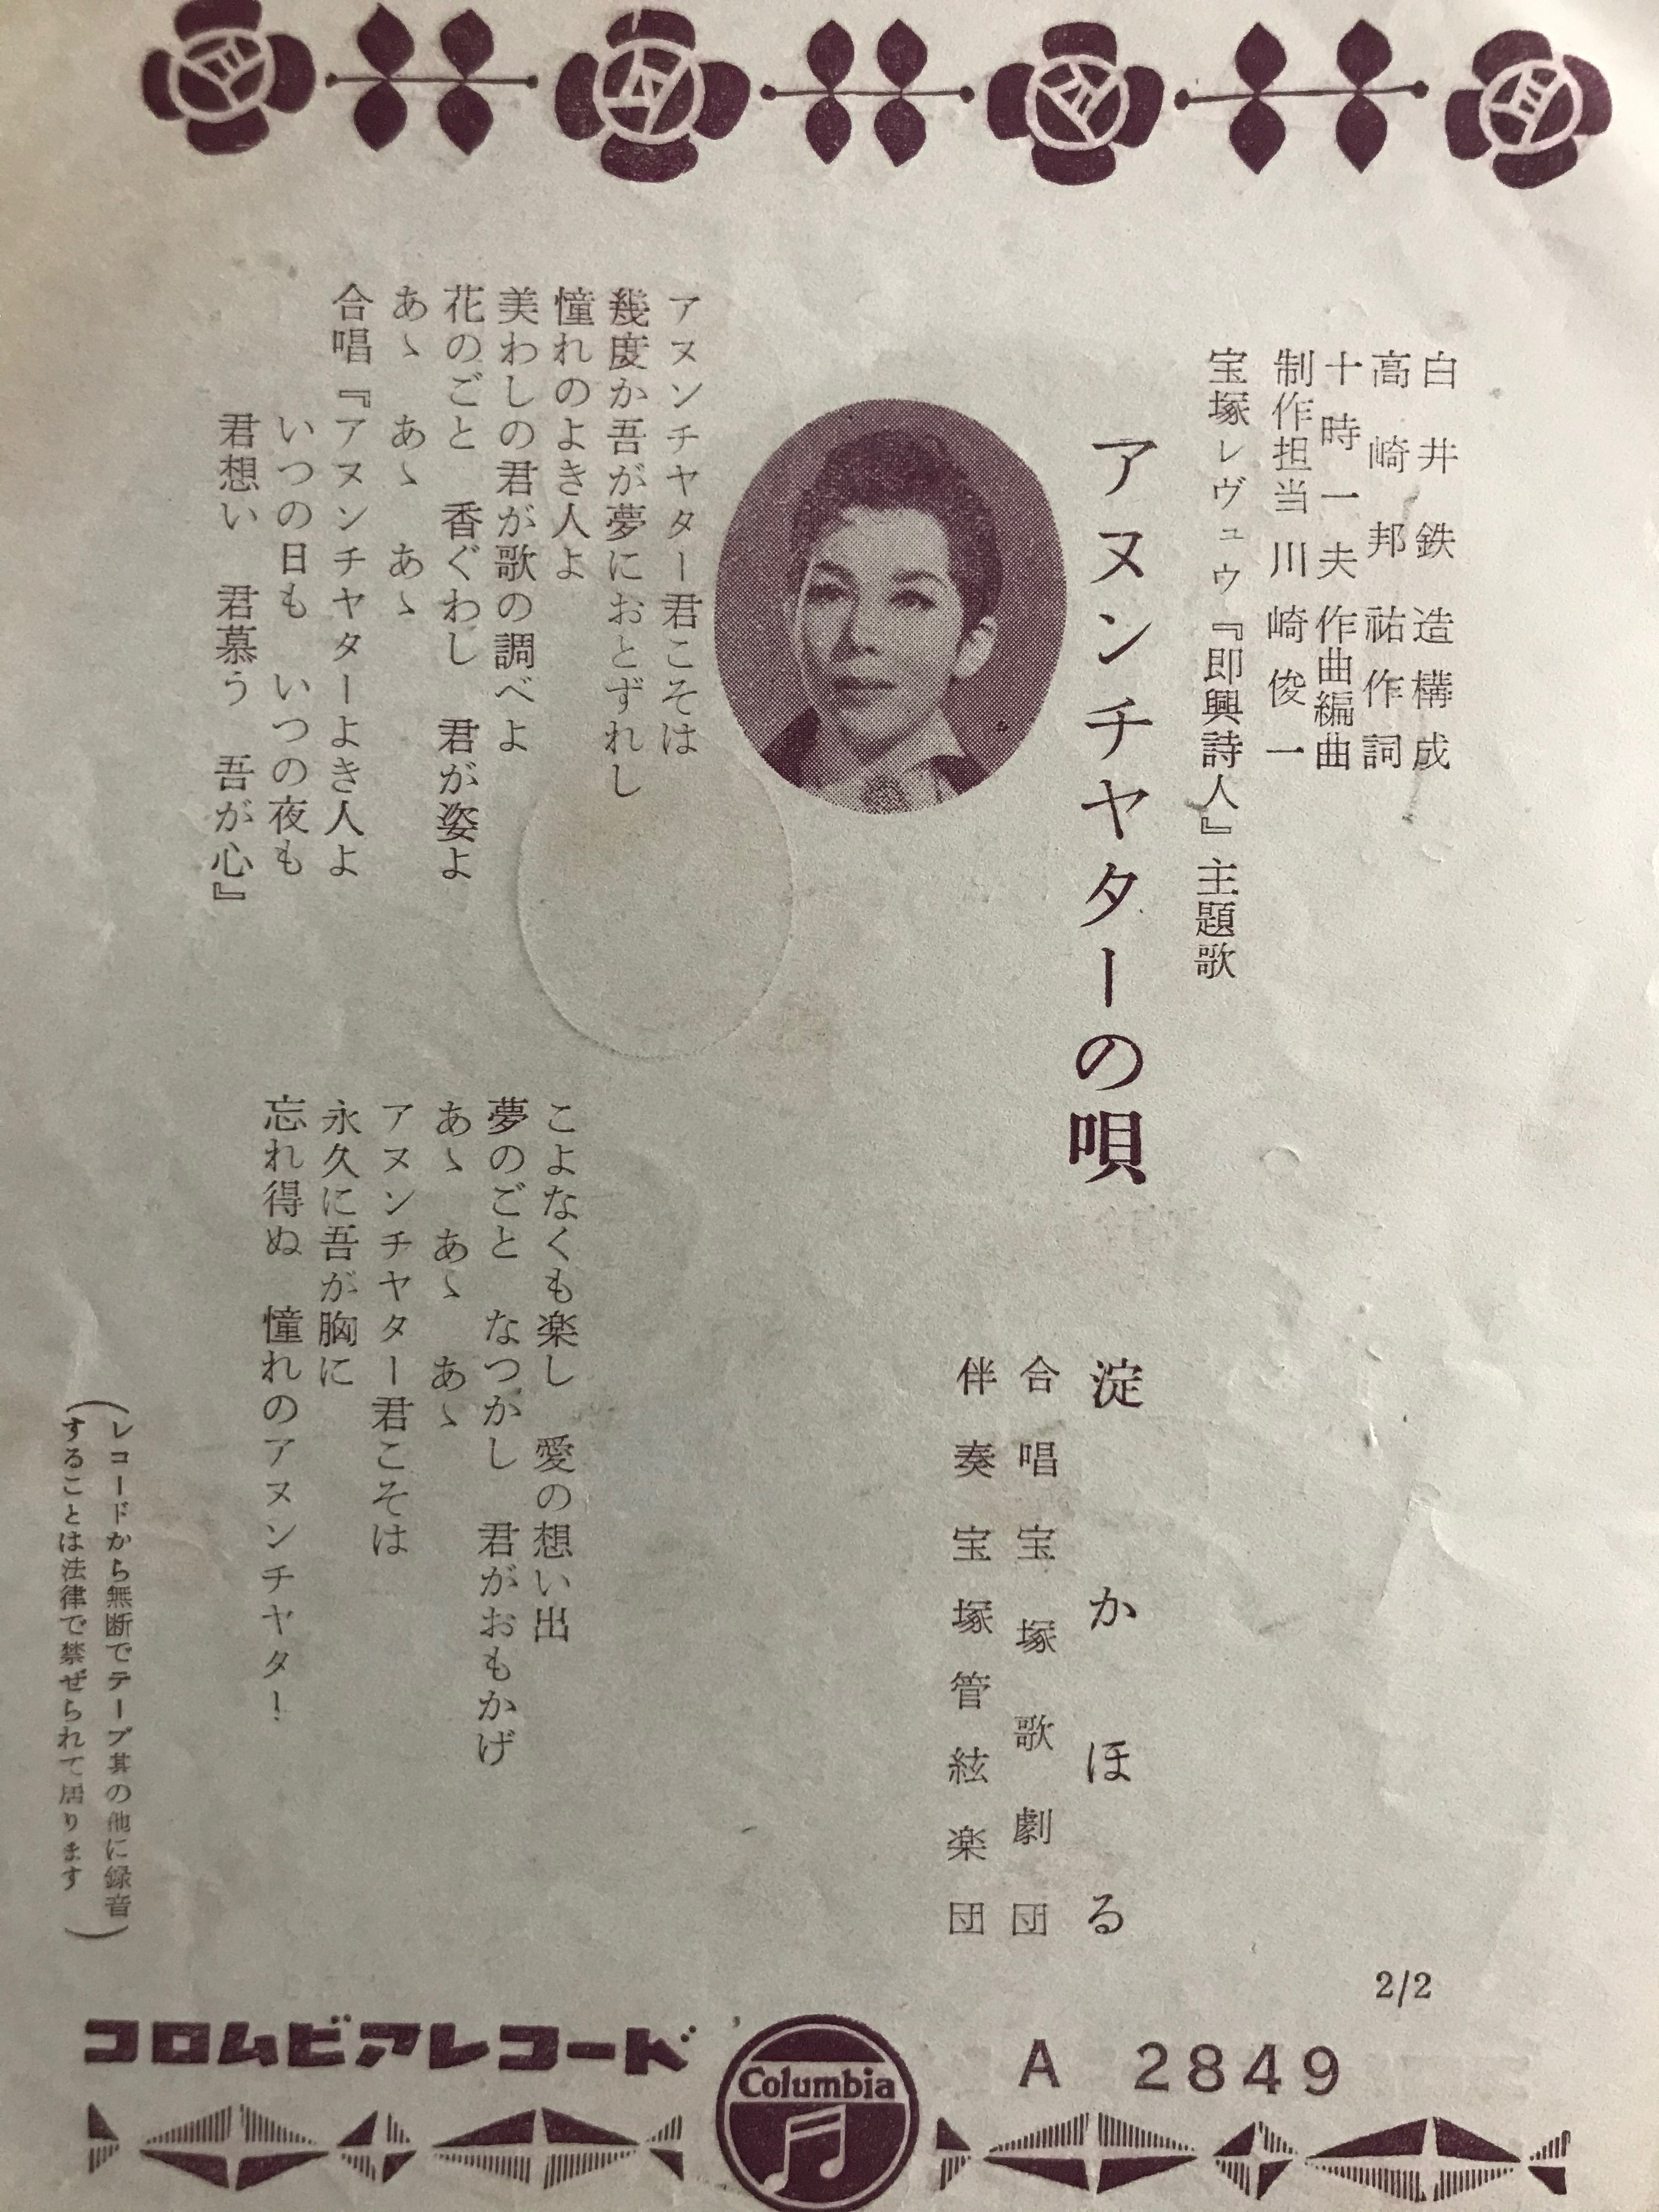 白井鉄造構成
高崎邦祐作詞
十時一夫作曲編曲
制作担当川崎俊一
宝塚レヴュウ『即興詩人』主題歌
アヌンチヤターの唄
淀かほる
合唱宝塚歌劇団
伴奏宝塚管絃楽団
アヌンチヤター君こそは
幾度か吾が夢におとずれし
憧れのよき人よ
美わしの君が歌の調べよ
花のごと 香ぐわし 君が姿よ
あゝ あゝ あゝ
合唱『アヌンチヤターよき人よ
いつの日も いつの夜も
君想い 君慕う 吾が心』
こよなくも楽し 愛の想い出
夢のごと なつかし 君がおもかげ
あゝ あゝ あゝ
アヌンチヤター君こそは
永久に吾が胸に
忘れ得ぬ 憧れのアヌンチヤタ!
(レコードから無断でテープ其の他に録音
することは法律で禁ぜられて居ります)
2/2
A 2849
コロムビアレコード
Columbia